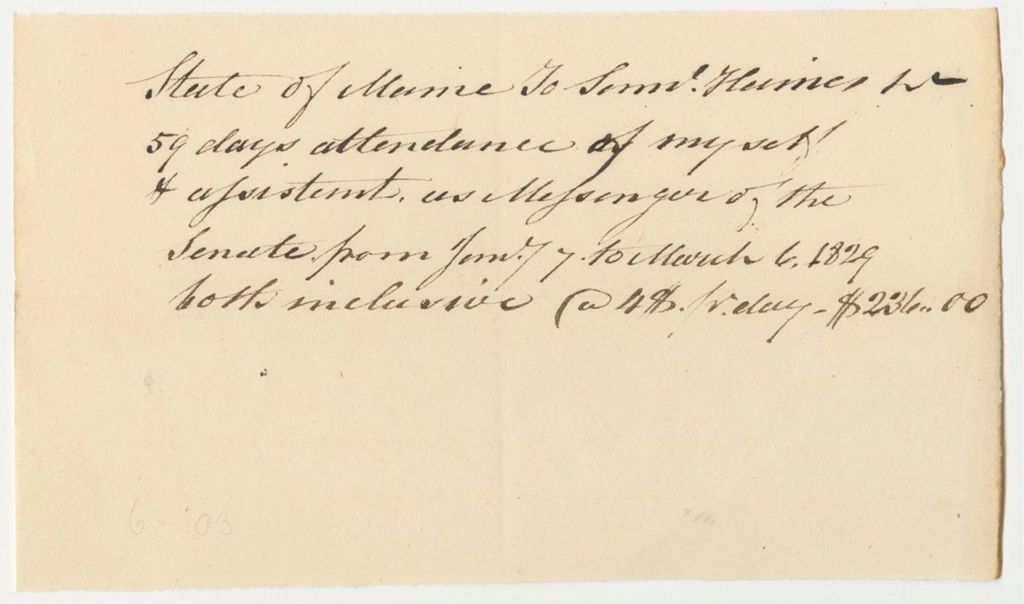 State of Maine To Saml. Haines Dr
59 days attendance of myself
& assistant. as Messenger of the
Senate from Jany 7. to March 6, 1829
both inclusive @ 4$. pr. day - $236..00
6 - 03